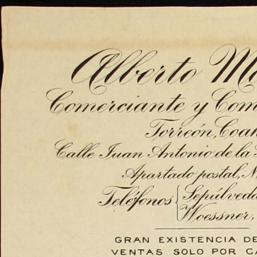 Alberto M
Comerciante y Com
Torreón, Coah
Calle Juan Antonio de la
Apartado postal, N
Teléfonos { Sepúlveda
Woessner,
GRAN EXISTENCIA DE
VENTAS SOLO POR CA